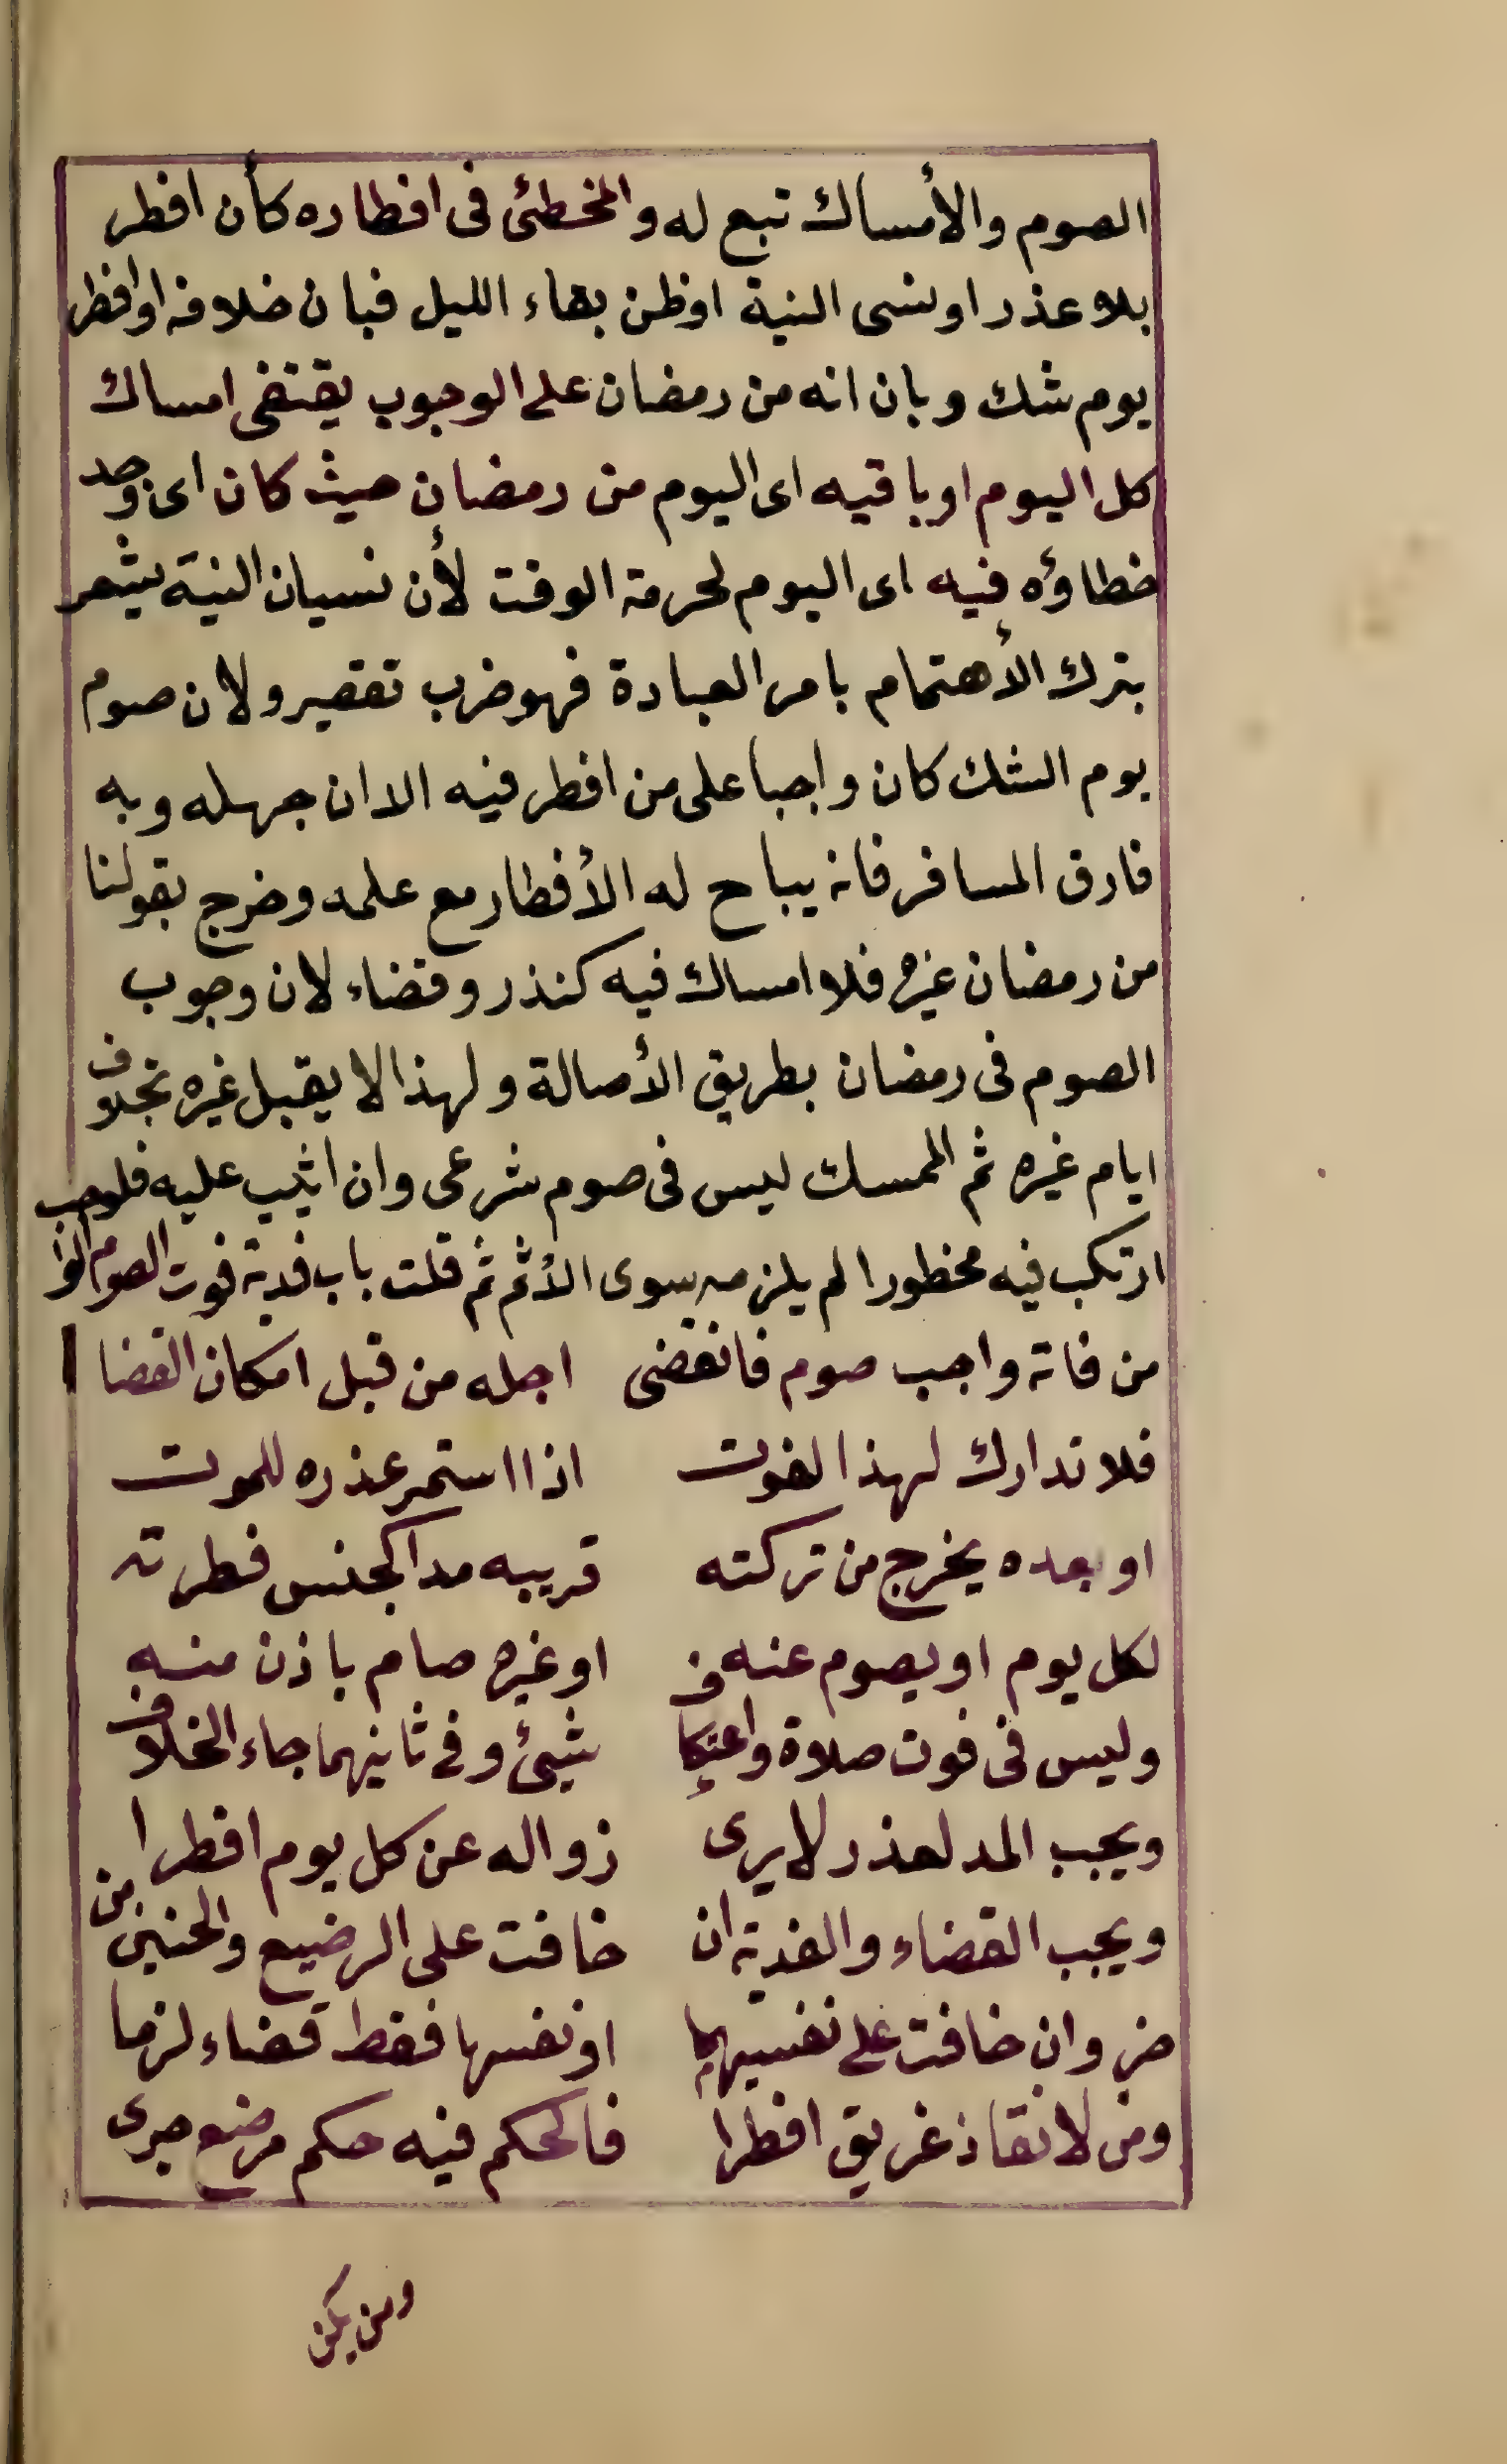 الصوم والأمساك تبع له والمخطئ فى افطاره كأن افطر
بلا عذر او نسى النية او ظن بقاء الليل فبان خلافه او افطر
يوم شك وبان انه من رمضان على الوجوب يقتفى امساك
كل اليوم او باقيه اى اليوم من رمضان حيث كان اى وجد
خطاؤه فيه اى اليوم لحرمة الوقت لأن نسيان النية يشعر
بترك الأهتمام بامر العبادة فهو ضرب تقصير ولان صوم
يوم الشك كان واجبا على من افطر فيه الا ان جهله وبه
فارق المسافر فانه يباح له الأفطار مع علمه وخرج بقولنا
من رمضان غيره فلا امساك فيه كنذر وقضاء لان وجوب
الصوم فى رمضان بطريق الأصالة ولهذا لا يقبل غيره بخلاف
ايام غيره ثم الممسك ليس فى صوم شرعى وان اثيب عليه فلو
ارتكب فيه محظورا لم يلزمه سوى الأثم ثم قلت باب فدية فوت الصوم
من فاته واجب صوم فانقضى اجله من قبل امكان القضا
فلا تدارك لهذا الفوت اذا استمر عذره للموت
او بعده يخرج من تركته قريبه مدا كجنس فطرته
لكل يوم او يصوم عنه او غيره صام باذن منه
وليس فى فوت صلاة واعتكاف شيئ وفى ثانيهما جاء الخلاف
ويجب المد لعذر لا يرى زواله عن كل يوم افطرا
ويجب القضاء والفدية ان خافت على الرضيع والجنين من
ضر وان خافت على نفسيهما او نفسها فقط قضاء لزما
ومن لانقاذ غريق افطرا فالحكم فيه حكم مرضع جرى
ومن يكن